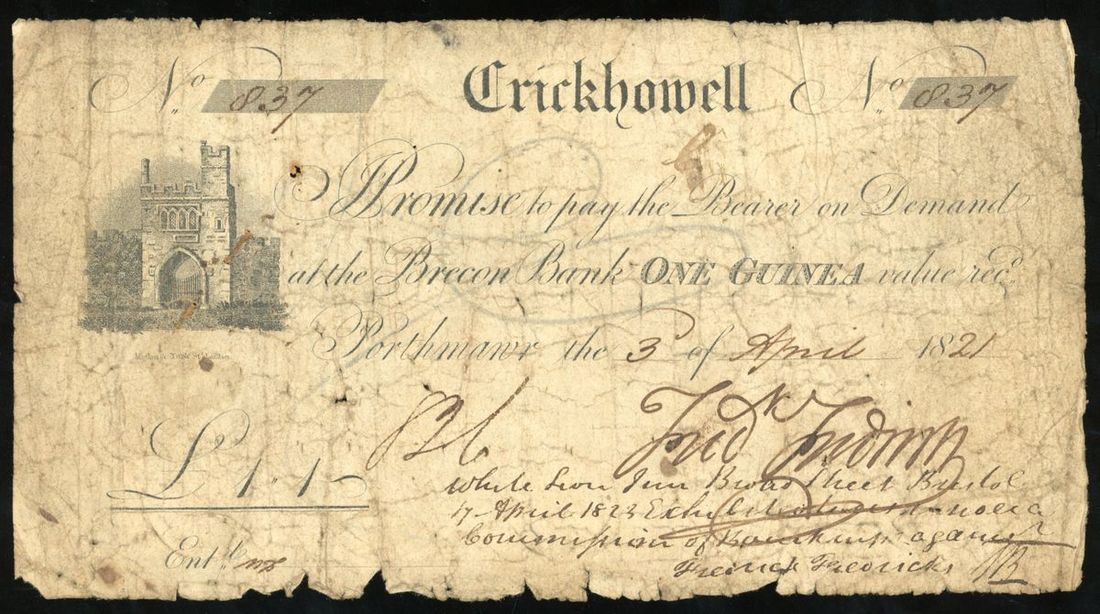 No. 837 Crickhowell No. 837
I Promise to pay the Bearer on Demand
at the Brecon Bank ONE GUINEA value recd.
Porthmawr the 3 of April 1821
826 Fredk Fredricks
£1.1-
White Lion Inn Broad Street Bristol
17 April 1823 Exhibited under a
Commission of Bankrupt against
Fredrick Fredricks
Entd.